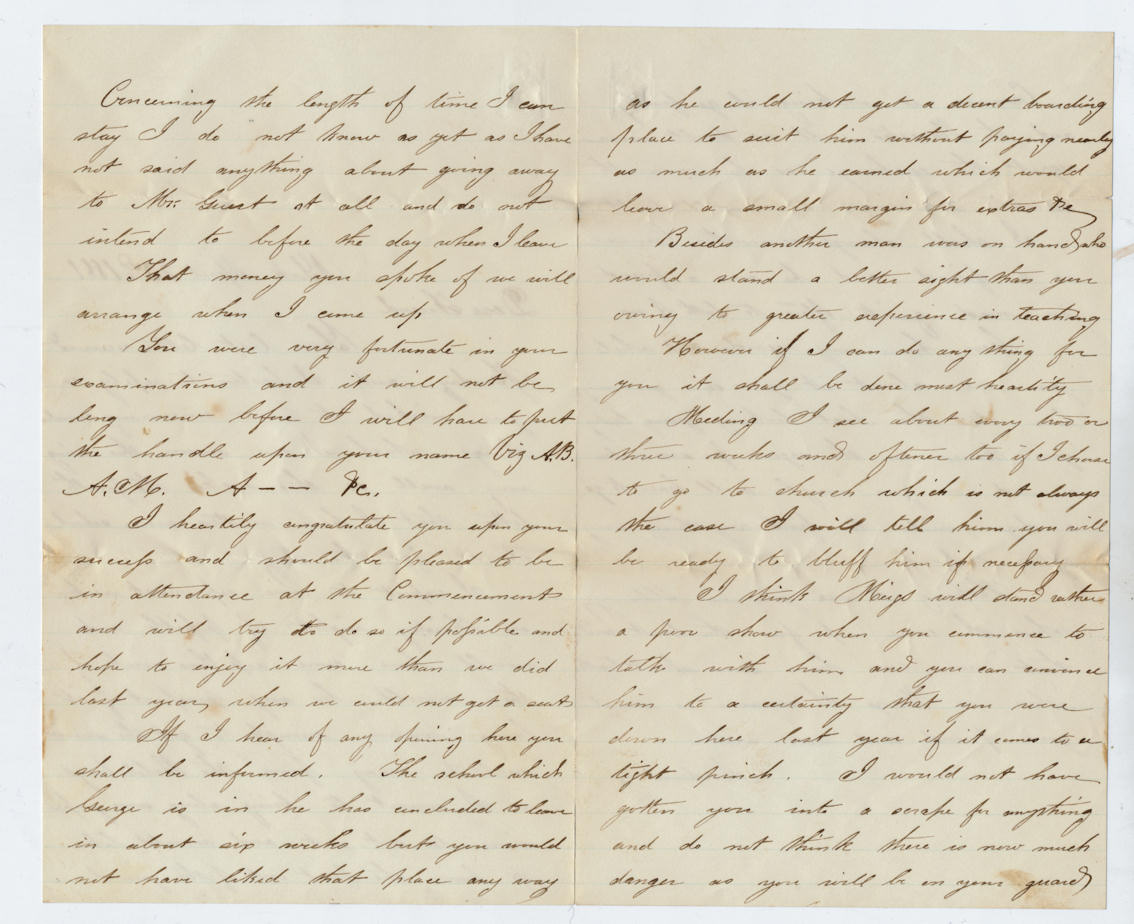 Concerning the length of time I can
stay I do not know as yet as I have
not said anything about going away
to Mr. Guest at all and do not
intend to before the day when I leave
That money you spoke of we will
arrange when I come up
You were very fortunate in your
examinations and it will not be
long now before I will have to put
the handle upon your name Viz A.B.
A.M. A – – &c.
I heartily congratulate you upon your
success and should be pleased to be
in attendance at the Commencement
and will try to do so if possible and
hope to enjoy it more than we did
last year, when we could not get a seat
If I hear of any opening here you
shall be informed. The school which
George is in he has concluded to leave
in about six weeks but you would
not have liked that place any way
as he could not get a decent boarding
place to suit him without paying nearly
as much as he earned which would
leave a small margin for extras &c
Besides another man was on hand who
would stand a better sight than you
owing to greater experience in teaching
However if I can do any thing for
you it shall be done most heartily
I see about every two or
three weeks and oftener too if I choose
to go to church which is not always
the case I will tell him you will
be ready to bluff him if necessary
I think Meigs will stand rather
a poor show when you commence to
talk with him and you can convince
him to a certainty that you were
down here last year if it comes to a
tight pinch. I would not have
gotten you into a scrape for anything
and do not think there is now much
danger as you will be on your guard